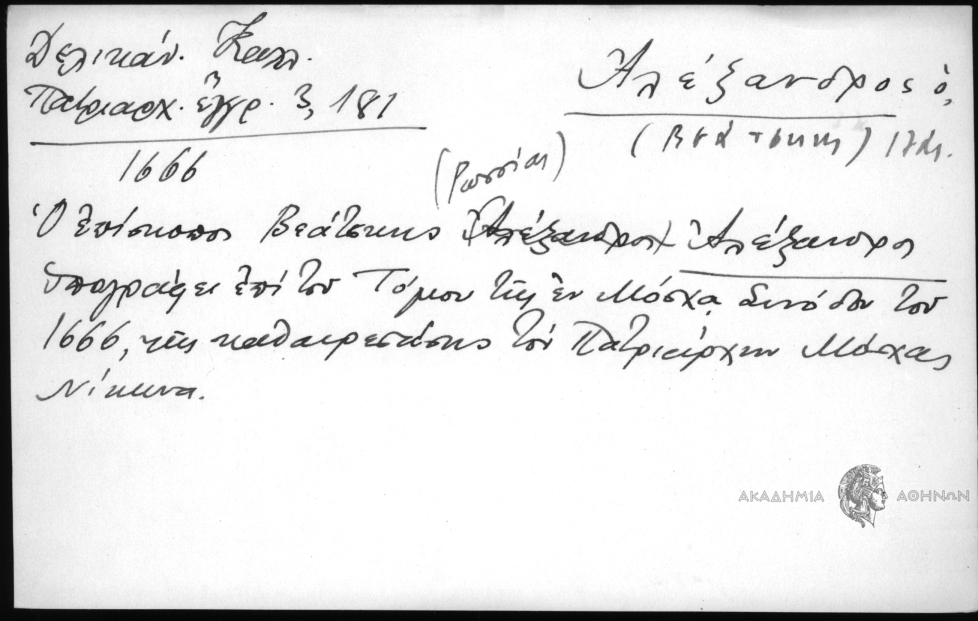 Δελικάν. Καλλ.
Πατριαρχ. ἔγγρ. 3, 181
1666
Ἀλέξανδρος ὁ,
(Βεάτσκης)
(Ρωσσίας)
Ὁ ἐπίσκοπος Βεάτσκης Ἀλέξανδρος Ἀλέξανδρος
ὑπογράφει ἐπὶ τοῦ Τόμου τῆς ἐν Μόσχᾳ Συνόδου τοῦ
1666, τῆς καθαιρεσάσης τὸν Πατριάρχην Μόσχας
Νίκωνα.
ΑΚΑΔΗΜΙΑ ΑΘΗΝΩΝ